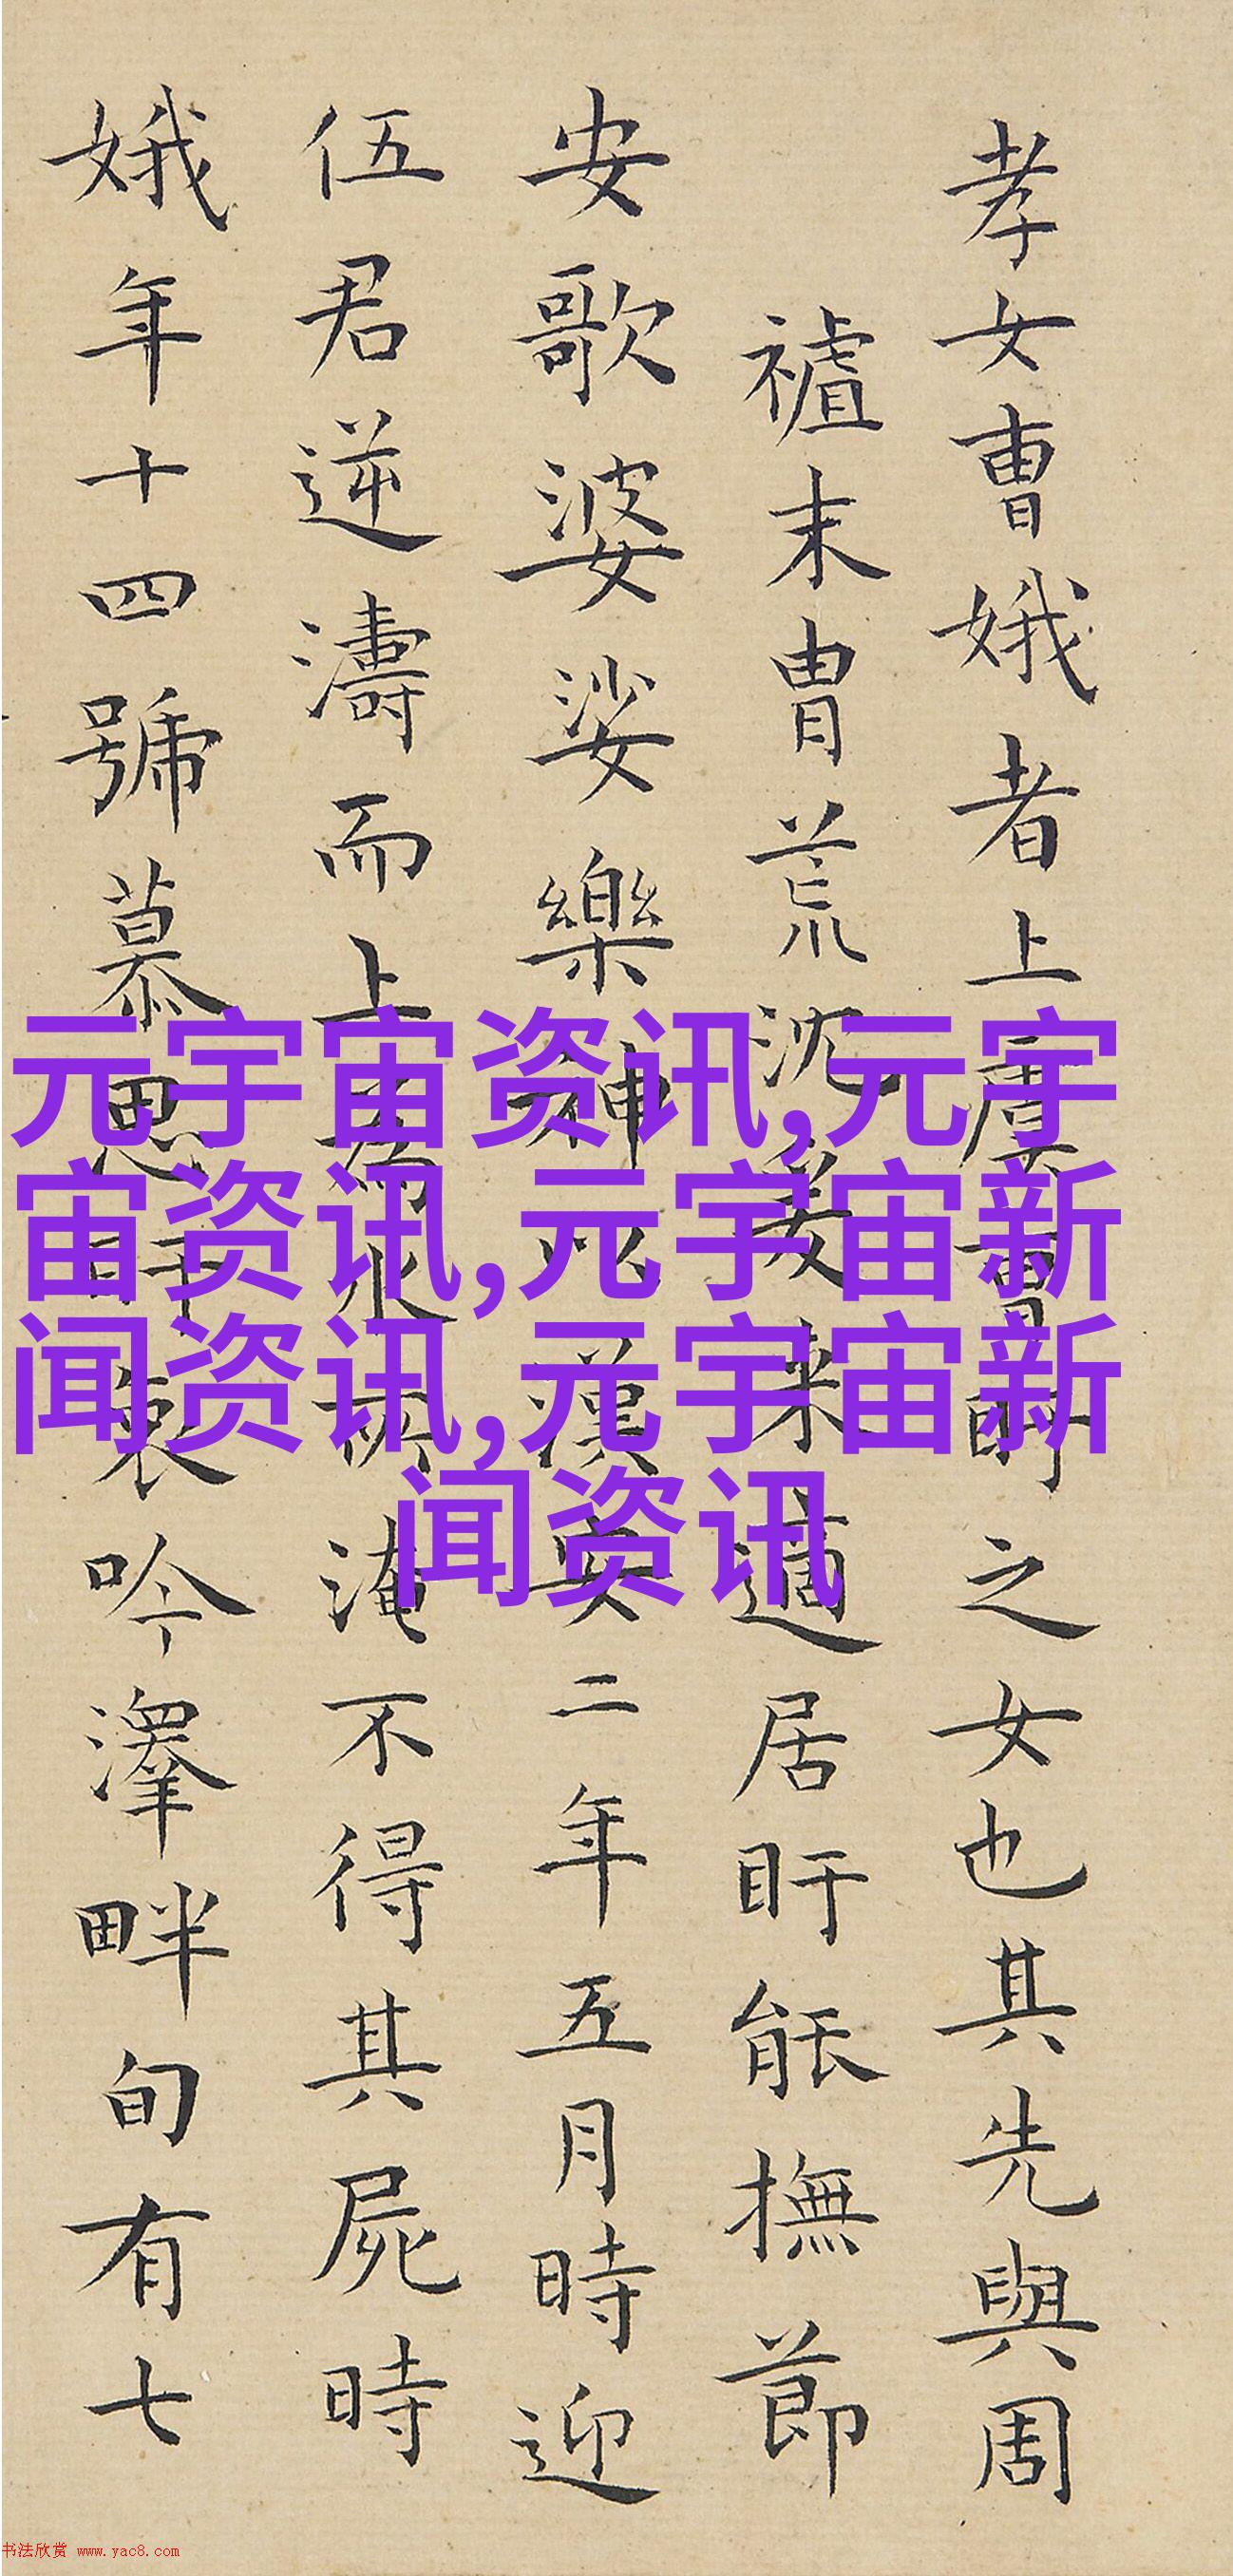 孝女曹娥者上虞曹盱之女也其先與周
祖末胄荒沈爰来適居盱能撫節
安歌婆娑樂神以漢安二年五月時迎
伍君逆濤而上為水所淹不得其屍時
娥年十四號慕思盱哀吟澤畔旬有七
元宇宙资讯,元宇
宙资讯,元宇宙新
闻资讯,元宇宙新
闻资讯
书法欣赏 www.yac8.com